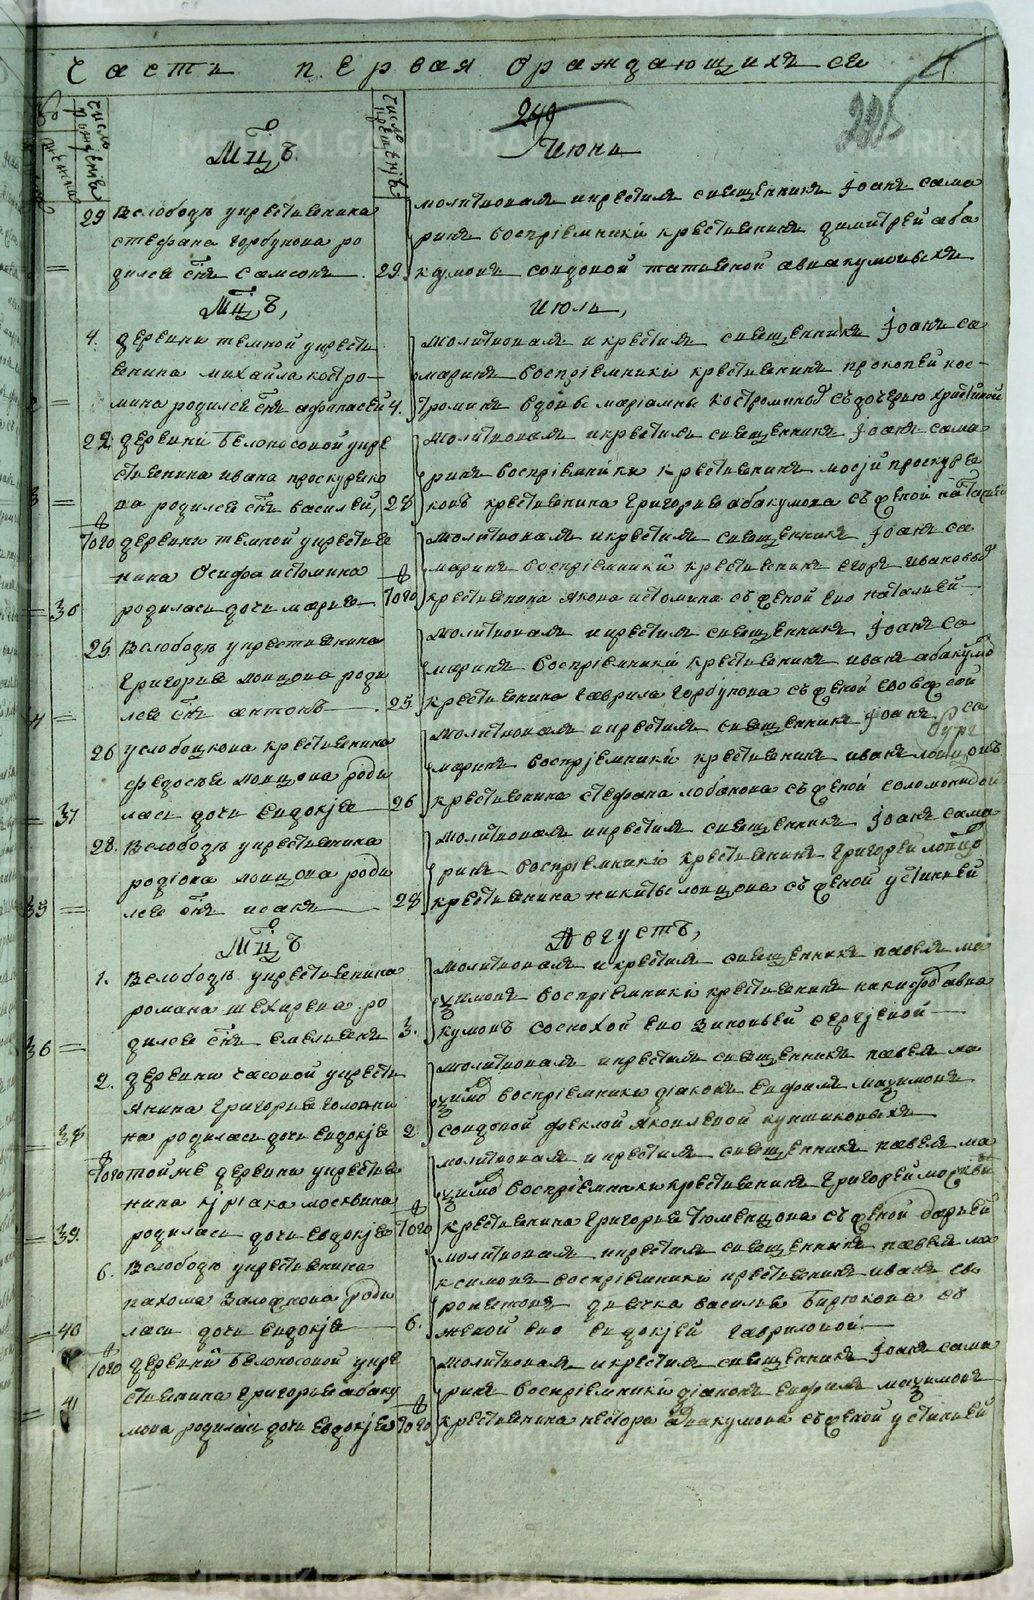 Часть первая ораждающихся
4
249
225
число рожденiя
число крещенiя
Мцъ Июнь
29 Вслободѣ укрестьянина
стефана горбунова ро
дился снъ самсонъ
29. молитвовалъ икрестилъ священникъ Iоанъ сама
ринъ воспрiемники крестьянинъ димитрей аба
кумовъ совдовой татьяной авакумовыхъ
Мцъ, июль,
4. деревни темной укрестья
янина михайла костро
мина родился снъ афанасей
4. молитвовалъ и крестилъ священникъ Iоанъ са
маринъ воспрiемники крестьянинъ прокопей кос
троминъ вдовы марiамны костроминой съдочерию христиной
22 деревни Белоносовой укре
стьянина ивана проскуреко
ва родился снъ василей,
28 молитвовалъ икрестилъ священникъ Iоанъ сама
ринъ воспрiемники крестьянинъ мосiй проскуре
ковъ крестьянина григорья абакумова съ женой натальей
того деревни темной укрестья
нина Осифа истомина
родилась дочь марья
36
того молитвовалъ икрестилъ священникъ Iоанъ са
маринъ воспрiемники крестьянинъ егоръ ивановъ
крестьянина якова истомина съ женой ево натальей
25. Вслободѣ укрестьянина
Григорья лопцова роди
лся снъ антонъ
25 молитвовалъ икрестилъ священникъ Iоанъ са
маринъ воспрiемники крестьянинъ иванъ абакумо
крестьянина гаврила горбунова съ женой
26 услобоцкова крестьянина
федосья лопцова роди
лась дочь Евдокiя
37
26 молитвовалъ икрестилъ священникъ Iоанъ са
маринъ воспрiемники крестьянинъ иванъ лопцовъ
крестьянина стефана лобанова съ женой соломонидой
28. Вслободѣ укрестьянина
родiона лопцова роди
лся снъ исакъ
35
28 молитвовалъ икрестилъ священникъ Iоанъ сама
ринъ воспрiемники крестьянинъ григорей лопцо
крестьянина никиты лопцова съ женой устиньей
Мцъ Августъ,
1. Вслободѣ укрестьянина
романа шехирева ро
дился снъ емельянъ
36
3. молитвовалъ и крестилъ священникъ павелъ ма
ѯимовъ воспрiемники крестьянинъ никифоръ авва
кумовъ соснохой ево зиновьей сергiевой
2. деревни часовой укресть
янина григорья головни
на родилась дочь Евдокiя
38
2 молитвовалъ икрестилъ священникъ павелъ ма
ѯимо воспрiемники дiаконъ ефимъ маѯимовъ
совдовой феклой яковлевой купчиковыхъ
того тойже деревни укрестья
нина кирiака москвина
родилась дочь евдокiя
39.
того молитвовалъ икрестилъ священникъ павелъ ма
ѯимо воспрiемники крестьянинъ григорей морквин
крестьянина григорья тюменцова съ женой дарьей
6. Вслободѣ укрестьянина
пахома заложнова роди
лась дочь Евдокiя
40
6. молитвовалъ икрестилъ священникъ павелъ ма
ксимовъ воспрiемники крестьянинъ иванъ се
дьячка василья бирюкова съ
женой ево евдокiей гавриловой
того деревни белоносовой укре
стьянина григорья абаку
мова родилась дочь евдокiя
41
того молитвовалъ икрестилъ священникъ Iоанъ сама
ринъ воспрiемники дiаконъ ефимъ маѯимовъ
крестьянина нестора авакумова съ женой устиньей
METRIKI.GASO-URAL.RU